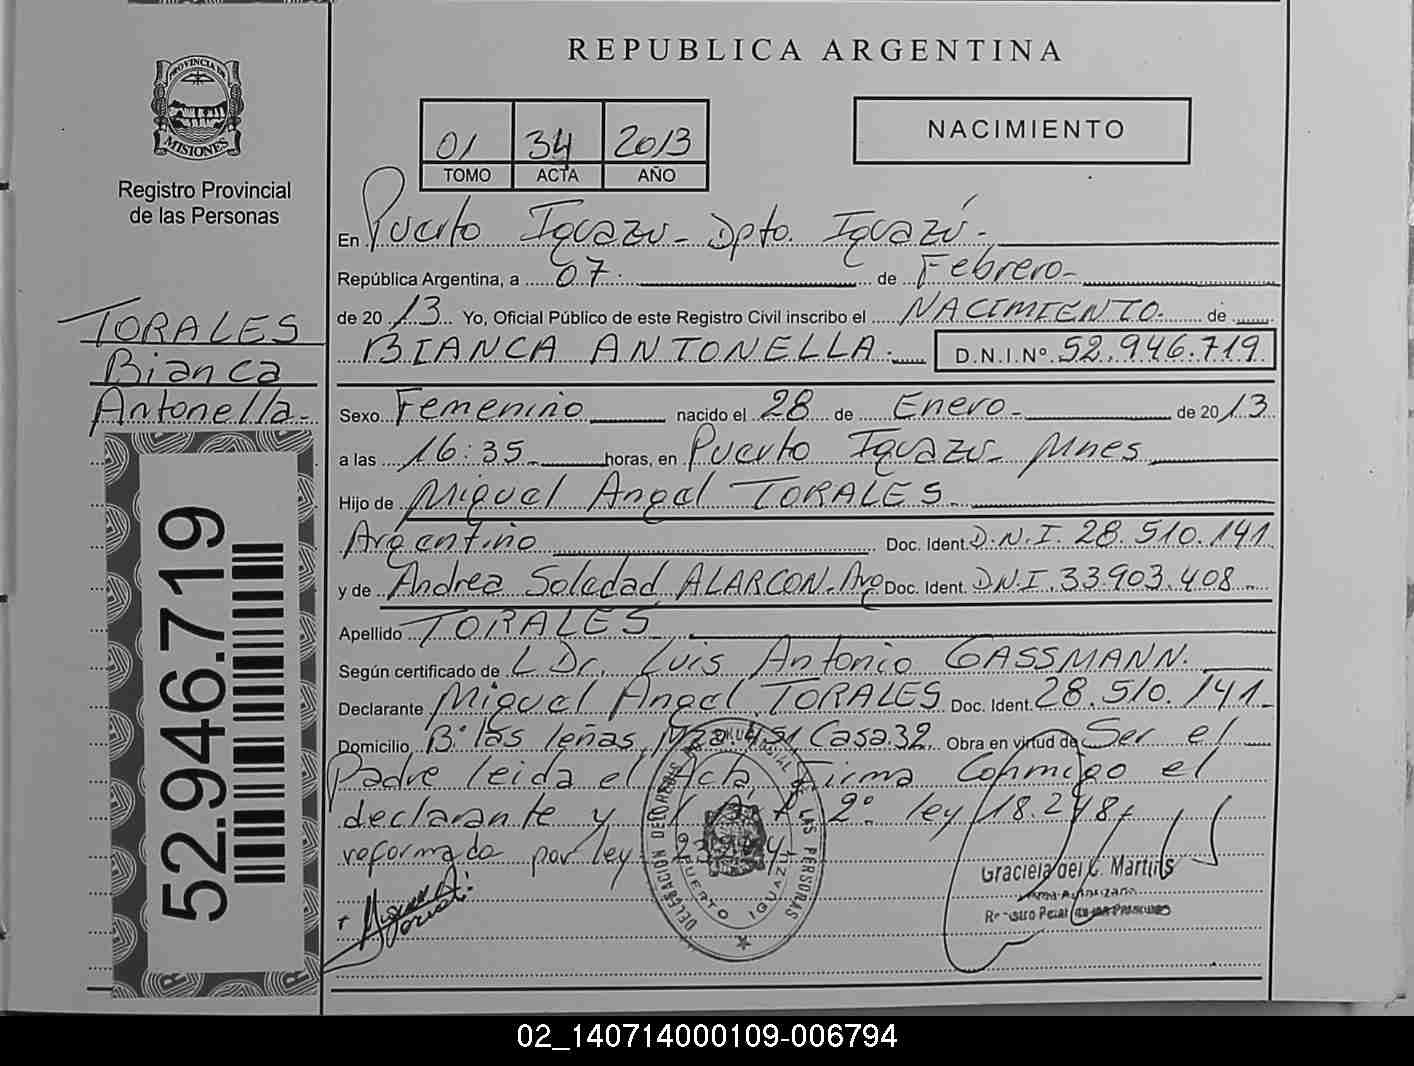 REPUBLICA ARGENTINA
PROVINCIA DE
MISIONES
Registro Provincial
de las Personas
01 34 2013
TOMO ACTA AÑO
NACIMIENTO
En Puerto Iguazu - Dpto. Iguazú -
República Argentina, a 07. de Febrero -
de 20 13 Yo, Oficial Público de este Registro Civil inscribo el NACIMIENTO. de
BIANCA ANTONELLA. D.N.I.Nº 52.946.719
TORALES
Bianca
Antonella -
Sexo Femenino nacido el 28 de Enero - de 20 13
a las 16:35 horas, en Puerto Iguazu - Mnes
Hijo de Miguel Angel TORALES
Argentino Doc. Ident. D.N.I. 28.510.141
y de Andrea Soledad ALARCON. Arg Doc. Ident. D.N.I. 33.903.408
Apellido TORALES
Según certificado de L Dr. Luis Antonio GASSMANN.
Declarante Miguel Angel TORALES Doc. Ident. 28.510.141
Domicilio Bº las leñas Casa 32 Obra en virtud de Ser el
Padre leida el Acta, Firma Conmigo el
declarante y 2º ley 18.248
reformada por ley
52.946.719
DELEGACION DE LAS PERSONAS
PUERTO IGUAZU
Graciela del C. Martins
02_140714000109-006794